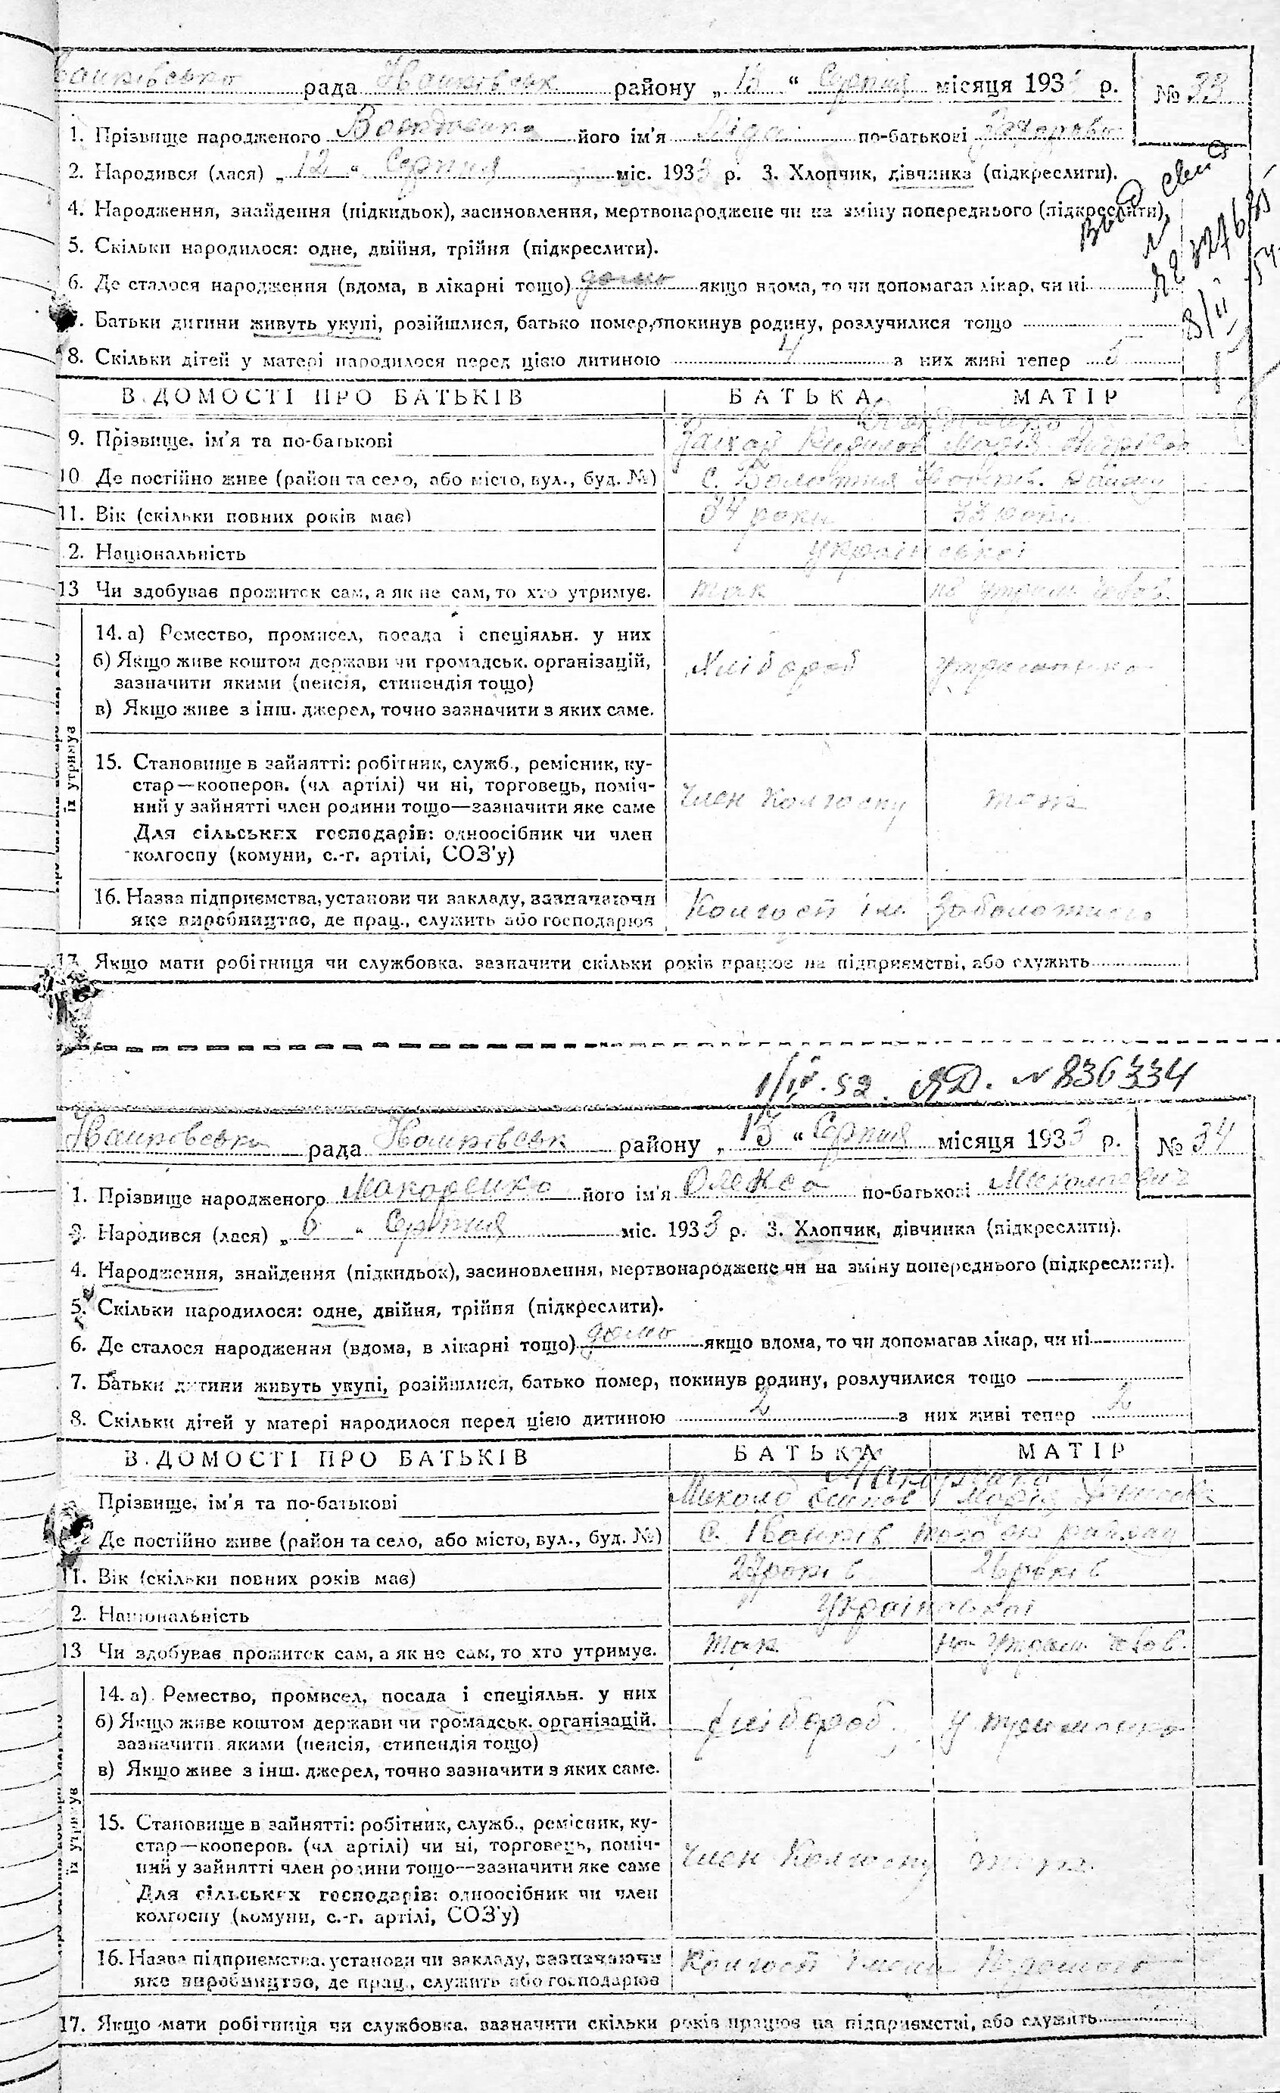 рада районуॱ „ 13 “ Серпня місяця 193 р. № 33
1. Прізвище народженого його ім'я Ліда по-батькові
2. Народився (лася) „ 12 “ Серпня міс. 1933 р. 3. Хлопчик, дівчинка (підкреслити).
4. Народження, знайдення (підкидьок), засиновлення, мертвонароджене чи на зміну попереднього (підкреслити)
5. Скільки народилося: одне, двійня, трійня (підкреслити).
6. Де сталося народження (вдома, в лікарні тощо) дома якщо вдома, то чи допомагав лікар, чи ні
Батьки дитини живуть укупі, розійшлися, батько помер, покинув родину, розлучилися тощо
8. Скільки дітей у матері народилося перед цією дитиною 4 з них живі тепер 5
В ДОМОСТІ ПРО БАТЬКІВ БАТЬКА МАТІР
9. Прізвище, ім'я та по-батькові Марія
10 Де постійно живе (район та село, або місто, вул., буд. №) с.
11. Вік (скільки повних років має) 34 роки 33 роки
2. Національність української
13 Чи здобуває прожиток сам, а як не сам, то хто утримує. так на утрим. чолов.
14. а) Ремество, промисел, посада і спеціяльн. у них
б) Якщо живе коштом держави чи громадськ. організацій, Хлібороб утриманка
зазначити якими (пенсія, стипендія тощо)
в) Якщо живе з інш. джерел, точно зазначити з яких саме.
їх утримує
15. Становище в зайнятті: робітник, служб., ремісник, ку-
стар—кооперов. (чл артілі) чи ні, торговець, поміч-
ний у зайнятті член родини тощо—зазначити яке саме Член Колгоспу теж
Для сільських господарів: одноосібник чи член
колгоспу (комуни, с.-г. артілі, СОЗ'у)
16. Назва підприємства, установи чи закладу, зазначаючи Колгосп ім
яке виробництво, де прац., служить або господарює
17. Якщо мати робітниця чи службовка, зазначити скільки років працює на підприємстві, або служить
1/IV-52 ЯД. № 836334
рада районуॱ „ 13 “ Серпня місяця 1933 р. № 34
1. Прізвище народженого Макаренко його ім'я Олекса по-батькові Миколаєвич
2. Народився (лася) „ 6 “ Серпня міс. 1933 р. 3. Хлопчик, дівчинка (підкреслити).
4. Народження, знайдення (підкидьок), засиновлення, мертвонароджене чи на зміну попереднього (підкреслити).
5. Скільки народилося: одне, двійня, трійня (підкреслити).
6. Де сталося народження (вдома, в лікарні тощо) дома якщо вдома, то чи допомагав лікар, чи ні
7. Батьки дитини живуть укупі, розійшлися, батько помер, покинув родину, розлучилися тощо
8. Скільки дітей у матері народилося перед цією дитиною 2 з них живі тепер 2
В ДОМОСТІ ПРО БАТЬКІВ БАТЬКА МАТІР
Макаренко
Прізвище, ім'я та по-батькові Микола Марія
Де постійно живе (район та село, або місто, вул., буд. №) с.
11. Вік (скільки повних років має) 27 років 26 років
2. Національність Української
13 Чи здобуває прожиток сам, а як не сам, то хто утримує. так на утрим. чолов.
14. а) Ремество, промисел, посада і спеціяльн. у них
б) Якщо живе коштом держави чи громадськ. організацій. хлібороб утриманка
зазначити якими (пенсія, стипендія тощо)
в) Якщо живе з інш. джерел, точно зазначити з яких саме.
їх утримує
15. Становище в зайнятті: робітник, служб., ремісник, ку-
стар—кооперов. (чл артілі) чи ні, торговець, поміч-
ний у зайнятті член родини тощо—зазначити яке саме Член Колгоспу теж
Для сільських господарів: одноосібник чи член
колгоспу (комуни, с.-г. артілі, СОЗ'у)
16. Назва підприємства, установи чи закладу, зазначаючи Колгосп імени
яке виробництво, де прац., служить або господарює
17. Якщо мати робітниця чи службовка, зазначити скільки років працює на підприємстві, або служить